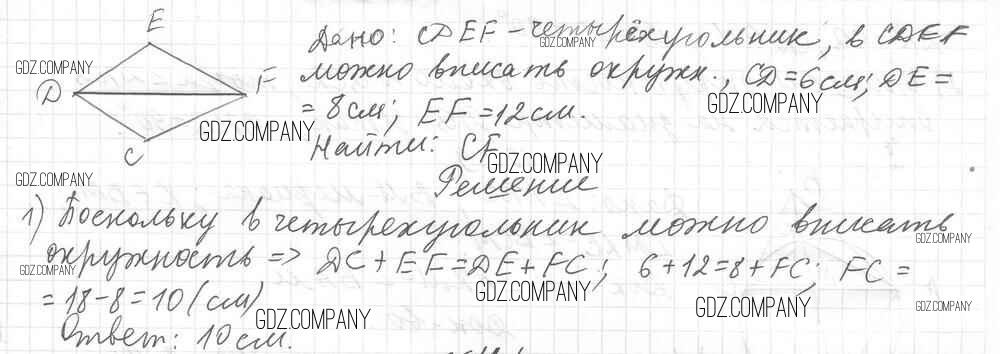 E
Дано: CDEF - четырёхугольник, в CDEF
GDZ.COMPANY
GDZ.COMPANY
D
F
можно вписать окружн., CD=6см; DE=
GDZ.COMPANY
= 8см; EF=12см.
GDZ.COMPANY
C
Найти: CF
GDZ.COMPANY
GDZ.COMPANY
Решение
1) Поскольку в четырехугольник можно вписать
GDZ.COMPANY
окружность => DC+EF=DE+FC; 6+12=8+FC; FC=
GDZ.COMPANY
GDZ.COMPANY
= 18-8=10 (см)
GDZ.COMPANY
GDZ.COMPANY
GDZ.COMPANY
Ответ: 10см.